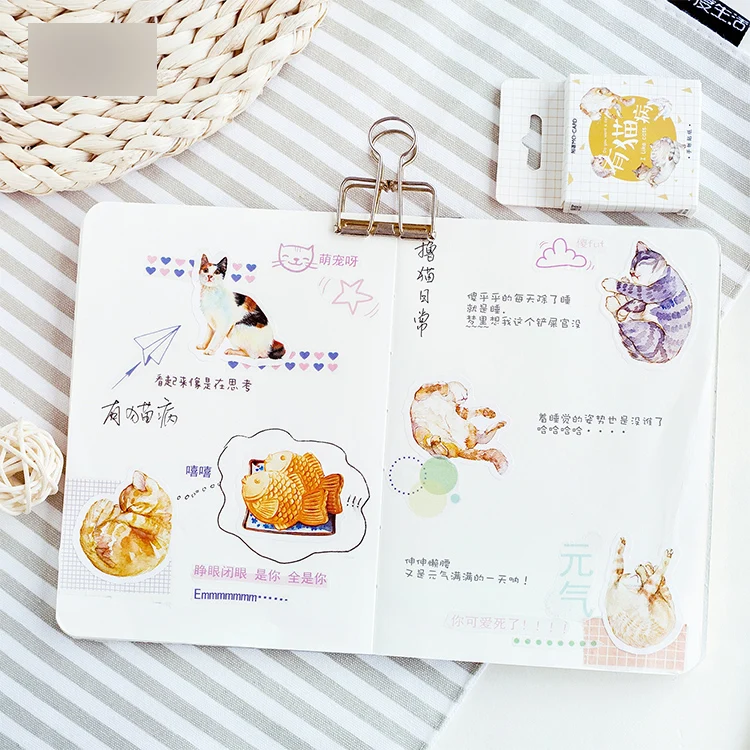 度生活
有猫病
萌宠呀
看起来像是在思考
有猫病
嘻嘻
!!!
睁眼闭眼 是你 全是你
Emmmmmmm······
撸猫日常
傻乎乎的每天除了睡
就是睡.
梦里想我这个铲屎官没
着睡觉的姿势也是没谁了
哈哈哈哈····
伸伸懒腰
又是元气满满的一天呐!
元气
你可爱死了!!!!